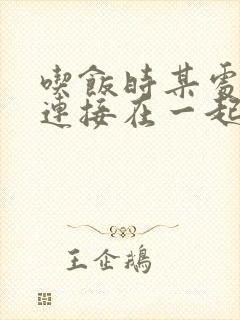 喫飯時某處
連接在一起
王企鵝